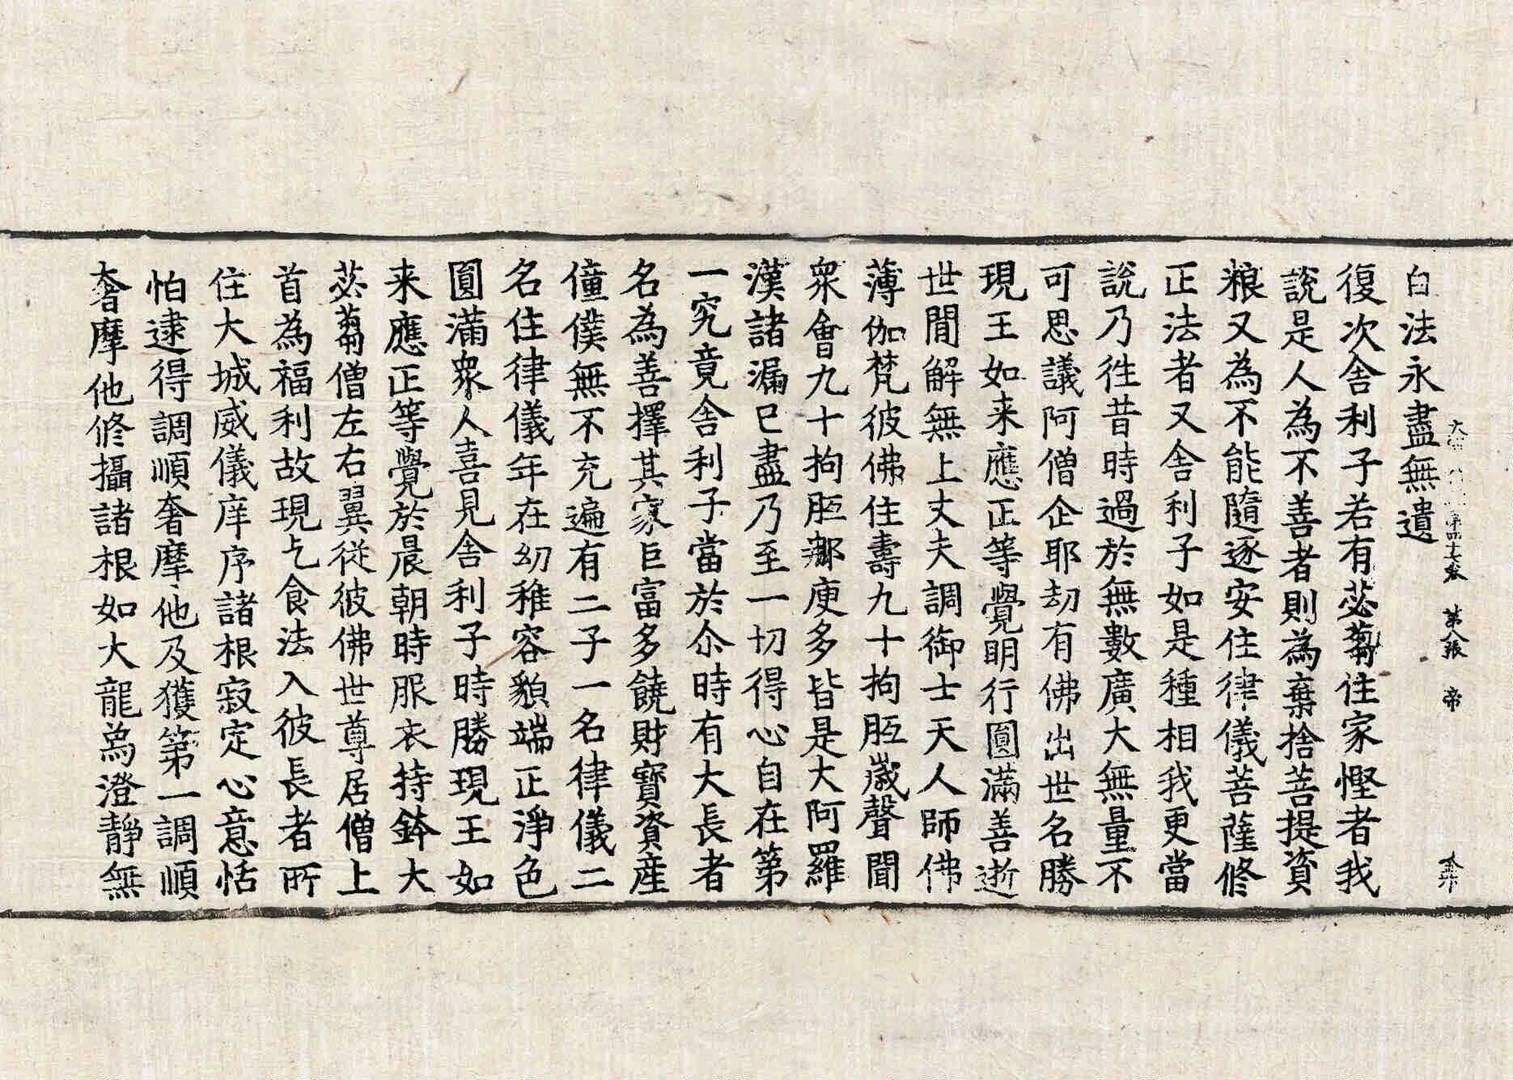 白法永盡無遺
復次舍利子若有苾蒭住家慳者我
說是人為不善者則為棄捨菩提資
粮又為不能隨逐安住律儀菩薩修
正法者又舍利子如是種相我更當
說乃徃昔時過於無數廣大無量不
可思議阿僧企耶劫有佛出世名勝
現王如来應正等覺明行圓滿善逝
世間解無上丈夫調御士天人師佛
薄伽梵彼佛住壽九十拘胝歲聲聞
衆會九十拘胝那庾多皆是大阿羅
漢諸漏已盡乃至一切得心自在第
一究竟舍利子當於尒時有大長者
名為善擇其家巨富多饒財寶資産
僮僕無不充遍有二子一名律儀二
名住律儀年在幼稚容貌端正淨色
圓滿衆人喜見舍利子時勝現王如
来應正等覺於晨朝時服衣持鉢大
苾蒭僧左右翼従彼佛世尊居僧上
首為福利故現乞食法入彼長者所
住大城威儀庠序諸根寂定心意恬
怕逮得調順奢摩他及獲第一調順
奢摩他修攝諸根如大龍為澄靜無
第八張 帝